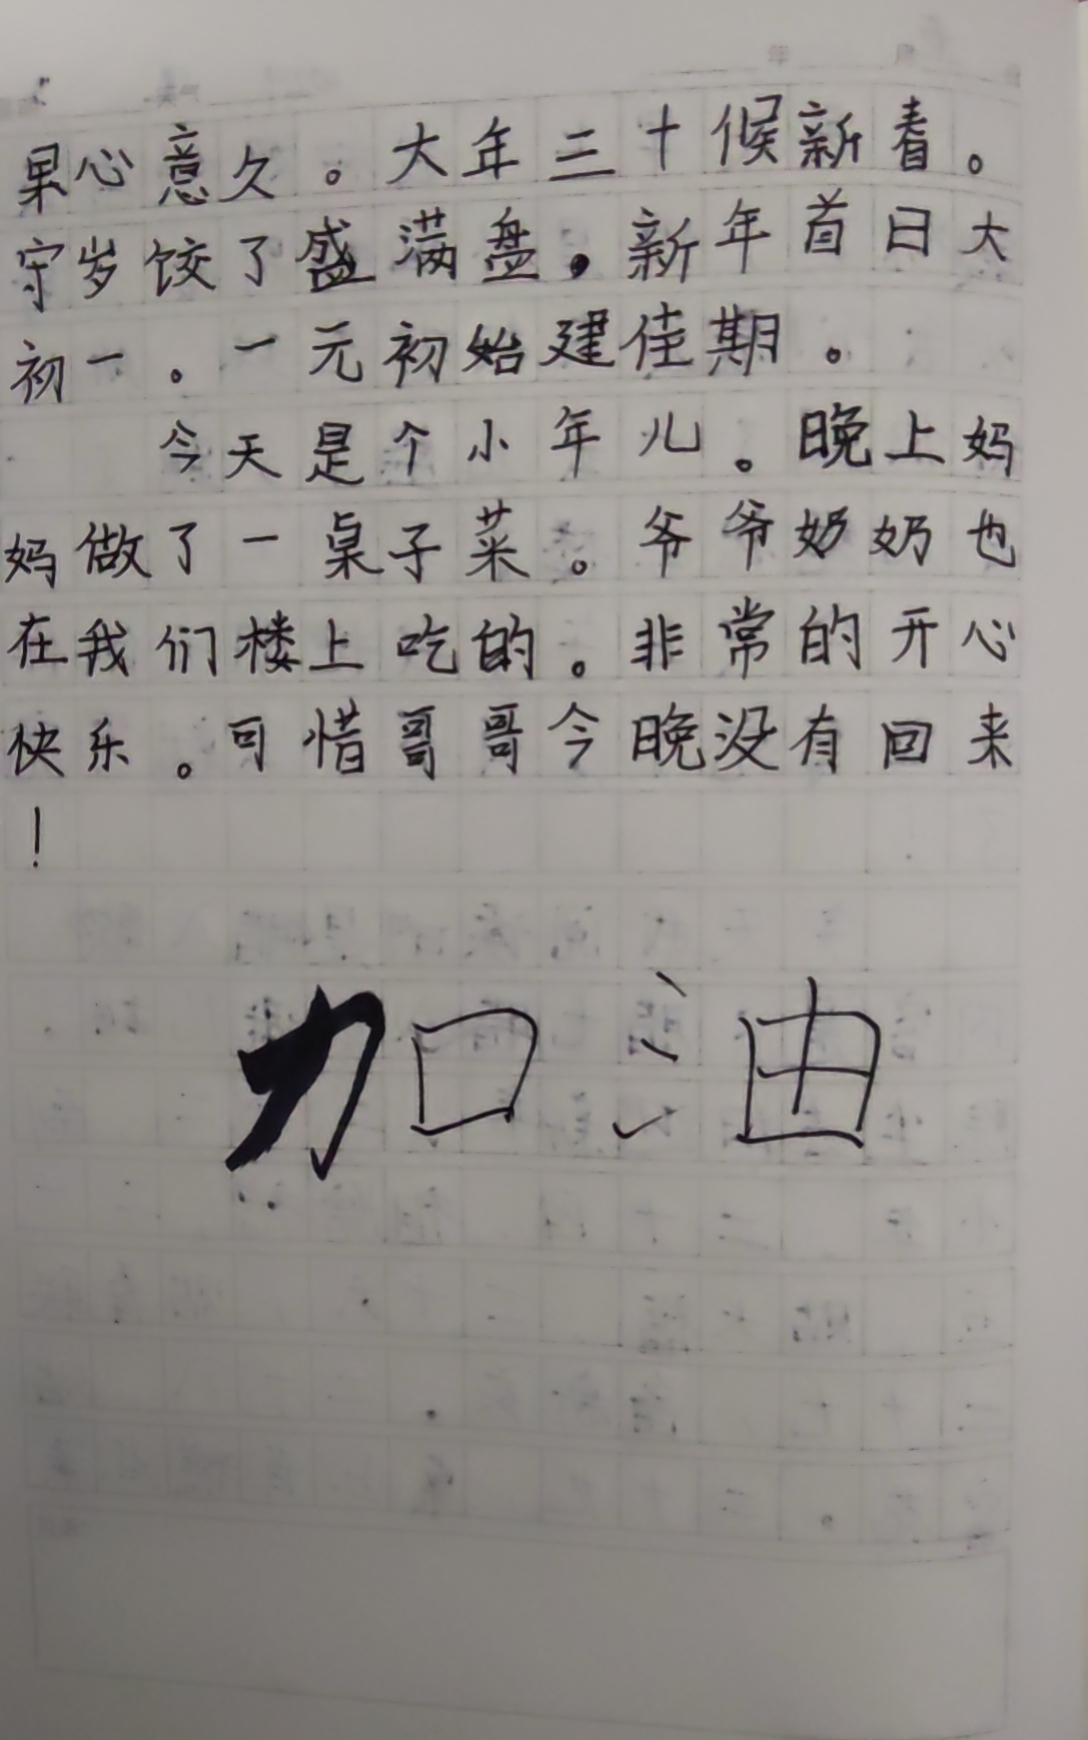 果心意久。大年三十候新春。
守岁饺了盛满盘。新年首日大
初一。一元初始建佳期。
今天是个小年儿。晚上妈
妈做了一桌子菜。爷爷奶奶也
在我们楼上吃的。非常的开心
快乐。可惜哥哥今晚没有回来
！
加油